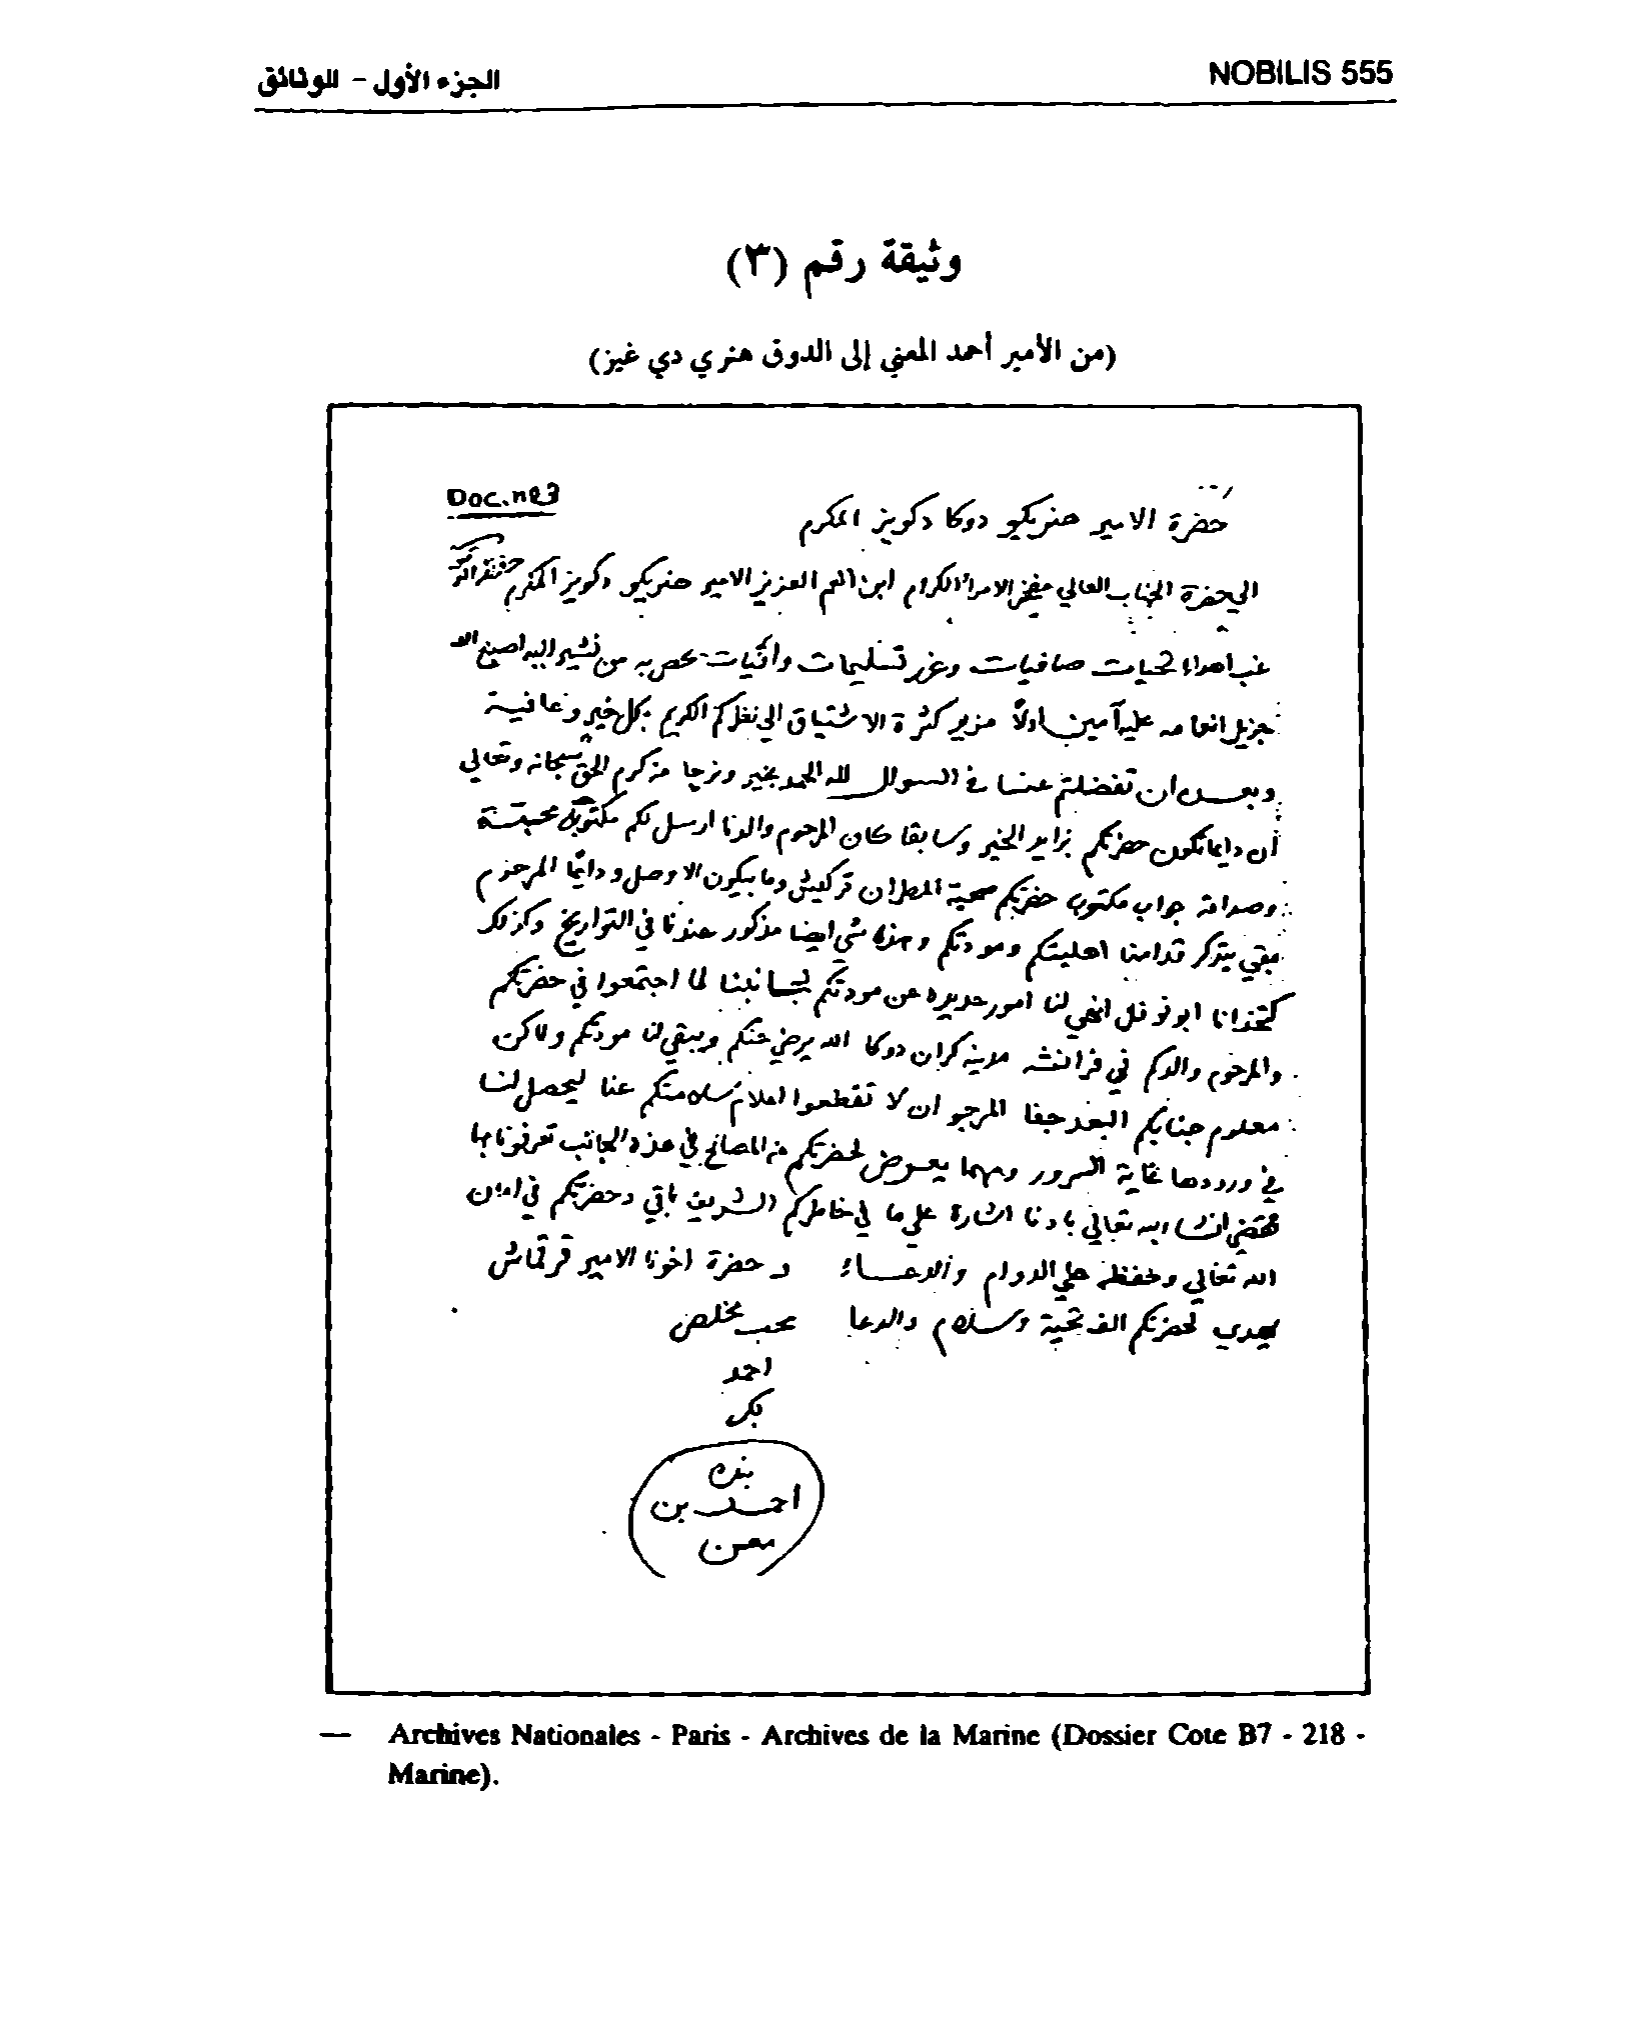 NOBILIS 555
الجزء الأول - الوثائق
وثيقة رقم (٣)
(من الأمير أحمد المعني إلى الدوق هنري دي غيز)
Doc. nº3
حضرة الامير هنريكو دوكا دكويز المكرم
الي حضرة الجناب العالي مفخر الامرا الكرام ابن العم العزيز الامير هنريكو دكويز المكرم
غب اهداء تحيات صافيات وغرر تسليمات واثنيات من نشير اليه اصبغ الله
جزيل انعامه عليه آمين اولاً مزيد كثرة الاشتياق الي نظركم الكريم بكل خير وعافية
وبعد ان تفضلتم عنا في السوال لله الحمد بخير ونرجا من كرم الحق سبحانه وتعالي
ان دايما تكون حضرتكم بزايد الخير وسابقا كان المرحوم والدنا ارسل لكم مكتوب محبة
وصداقة جواب مكتوب حضرتكم صحبة المطران تركيش وما بيكون الا وصل ودايما المرحوم
بقي يتذكر قدامنا اهليتكم ومودتكم وهذا شي ايضا مذكور عندنا في التواريخ وكذلك
كتخدانا ابو نوفل انهي لنا امور عديده عن مودتكم لجانبنا لما اجتمعوا في حضرتكم
والمرحوم والدكم في فرانشه مدينة كران دوكا الله يرضي عنكم ويبقي لنا مودتكم ولاكن
معلوم جنابكم البعد جفا المرجو ان لا تقطعوا اعلام سلامتكم عنا ليحصل لنا
في ورودها غاية السرور ومهما يعرض لحضرتكم من المصالح في هذه الجانب تعرفونا بها
تقضي انشا الله تعالي بادنا اشارة علي ما في خاطركم الشريف باقي وحضرتكم في امان
الله تعالي وحفظه علي الدوام والدعاء و حضرة اخونا الامير قرقماش
يهدي لحضرتكم الف تحية وسلام والدعا محب مخلص
احمد
بكر
بنده
احمد بن
معن
— Archives Nationales - Paris - Archives de la Marine (Dossier Cote B7 - 218 -
Marine).